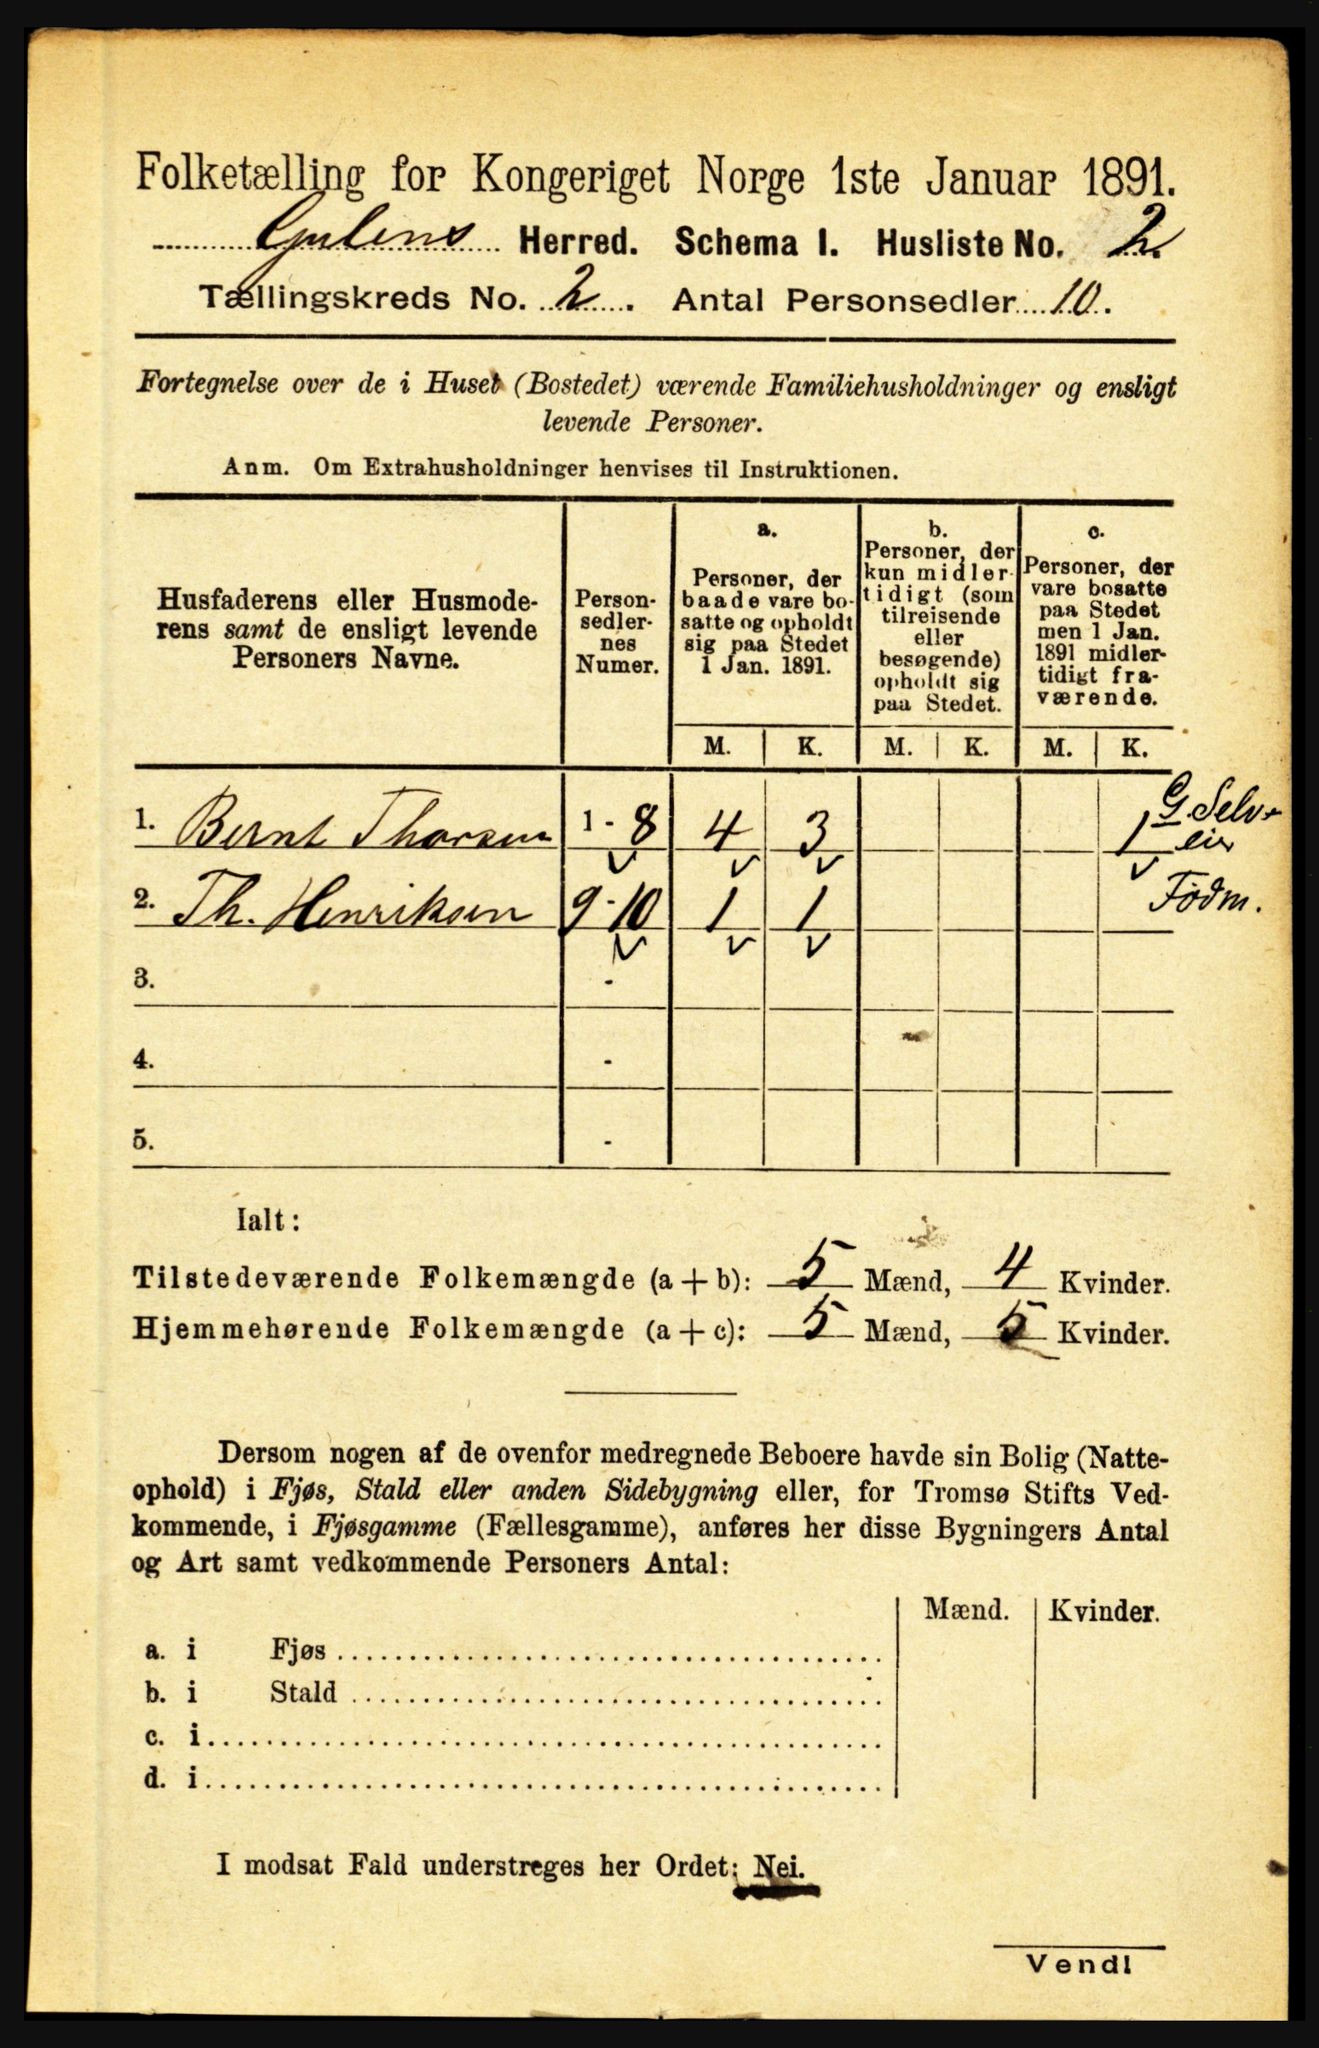 Folketælling for Kongeriget Norge 1ste Januar 1891.
Gulens Herred. Schema I. Husliste No. 2.
Tællingskreds No. 2. Antal Personsedler 10.
Fortegnelse over de i Huset (Bostedet) værende Familiehusholdninger og ensligt
levende Personer.
Anm. Om Extrahusholdninger henvises til Instruktionen.
Husfaderens eller Husmode-
rens samt de ensligt levende
Personers Navne.
Person-
sedler-
nes
Numer.
a.
Personer, der
baade vare bo-
satte og opholdt
sig paa Stedet
1 Jan. 1891.
b.
Personer, der
kun midler-
tidigt (som
tilreisende
eller
besøgende)
opholdt sig
paa Stedet.
c.
Personer, der
vare bosatte
paa Stedet
men 1 Jan.
1891 midler-
tidigt fra-
værende.
M. K. M. K. M. K.
1. Bernt Thorsen 1 - 8 4 3 1 G. Selv-
eier
2. Th. Henriksen 9 - 10 1 1 Födm.
3. -
4. -
5. -
Ialt:
Tilstedeværende Folkemængde (a + b): 5 Mænd, 4 Kvinder.
Hjemmehørende Folkemængde (a + c): 5 Mænd, 5 Kvinder.
Dersom nogen af de ovenfor medregnede Beboere havde sin Bolig (Natte-
ophold) i Fjøs, Stald eller anden Sidebygning eller, for Tromsø Stifts Ved-
kommende, i Fjøsgamme (Fællesgamme), anføres her disse Bygningers Antal
og Art samt vedkommende Personers Antal:
Mænd. Kvinder.
a. i Fjøs
b. i Stald
c. i
d. i
I modsat Fald understreges her Ordet: Nei.
Vend!